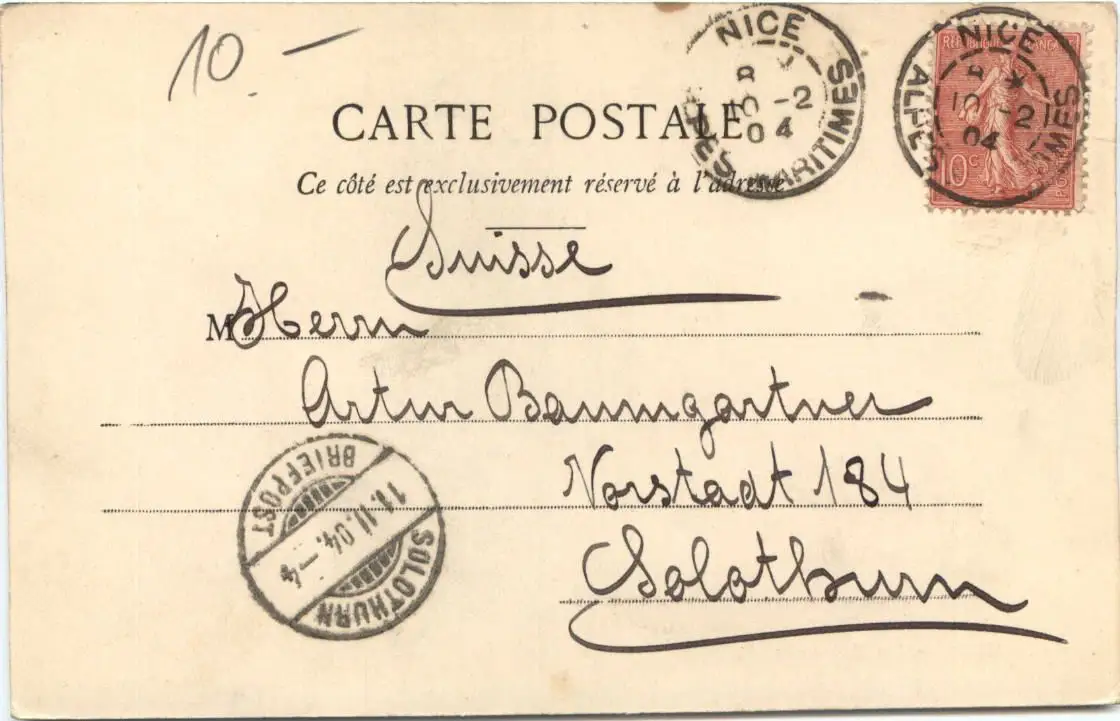 10 –
NICE
10 -2
04
ALPES MARITIMES
NICE
10 -2
04
ALPES MARITIMES
REPUBLIQUE FRANÇAISE
10c
CARTE POSTALE
Ce côté est exclusivement réservé à l'adresse
Suisse
M Herrn
Artur Baumgartner
Vorstadt 184
Solothurn
BRIEFPOST
11.II.04.–4
SOLOTHURN